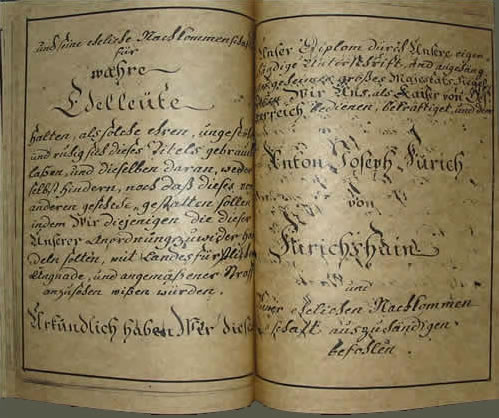 und seine eheliche Nachkommenschaft
für
wahre
Edelleute
halten, als solche ehren, ungestört
und ruhig sich dieses Titels gebrauchen
laßen, und dieselben daran, weder
selbst hindern, noch daß dieses von
anderen geschehe, gestatten sollen
indem Wir diejenigen die dieser
Unserer Anordnung zuwider han
deln sollten, mit Landesfürstlicher
Ungnade, und angemaßener Straf
anzusehen wißen würden.
Urkundlich haben Wir dieses
Unser Diplom durch Unsere eigen
händige Unterschrift, und
großes Majestäts
Wir Uns, als Kaiser von
bedienen, bekräftiget, und dem
Anton Joseph Fürich
von
Fürichshain
und
seiner ehelichen Nachkommen
schaft auszuhändigen
befohlen.